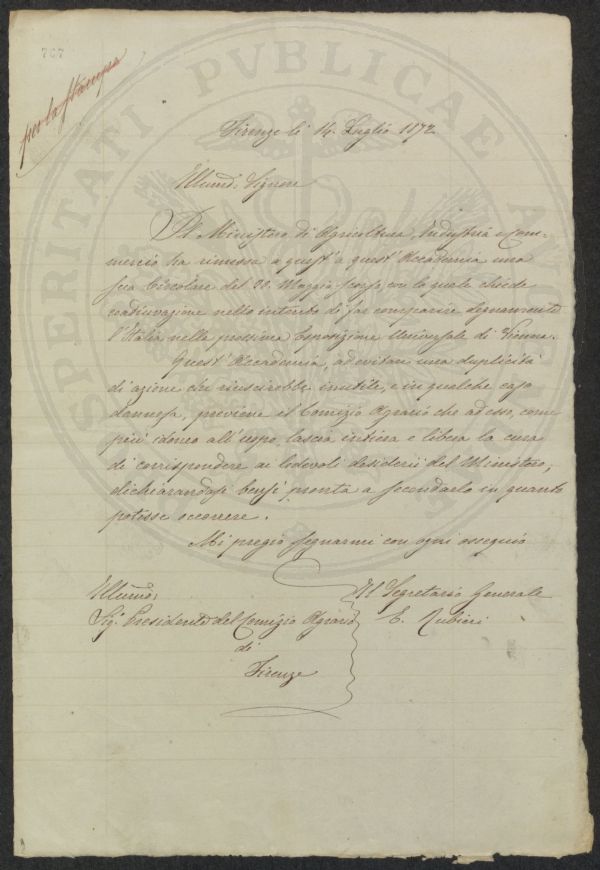 707
per la stampa
PROSPERITATI PUBLICAE AUGENDAE
Firenze li 14. Luglio 1872
Illmo. Signore
Il Ministero di Agricoltura, Industria e Com-
mercio ha rimessa a quest'a quest'Accademia una
sua Circolare del 22. Maggio scorso, con la quale chiede
coadiuvazione nello intento di far comparire degnamente
l'Italia nella prossima Esposizione Universale di Vienna.
Quest'Accademia, ad evitare una duplicità
di azione che riescirebbe inutile, e in qualche caso
dannosa, previene il Comizio Agrario che ad esso, come
più idoneo all'uopo, lascia intiera e libera la cura
di corrispondere ai lodevoli desiderii del Ministero,
dichiarandosi bensì pronta a secondarlo in quanto
potesse occorrere.
Mi pregio segnarmi con ogni ossequio
Illmo;
Il Segretario Generale
Sig. Presidente del Comizio Agrario
E. Rubieri
di
Firenze